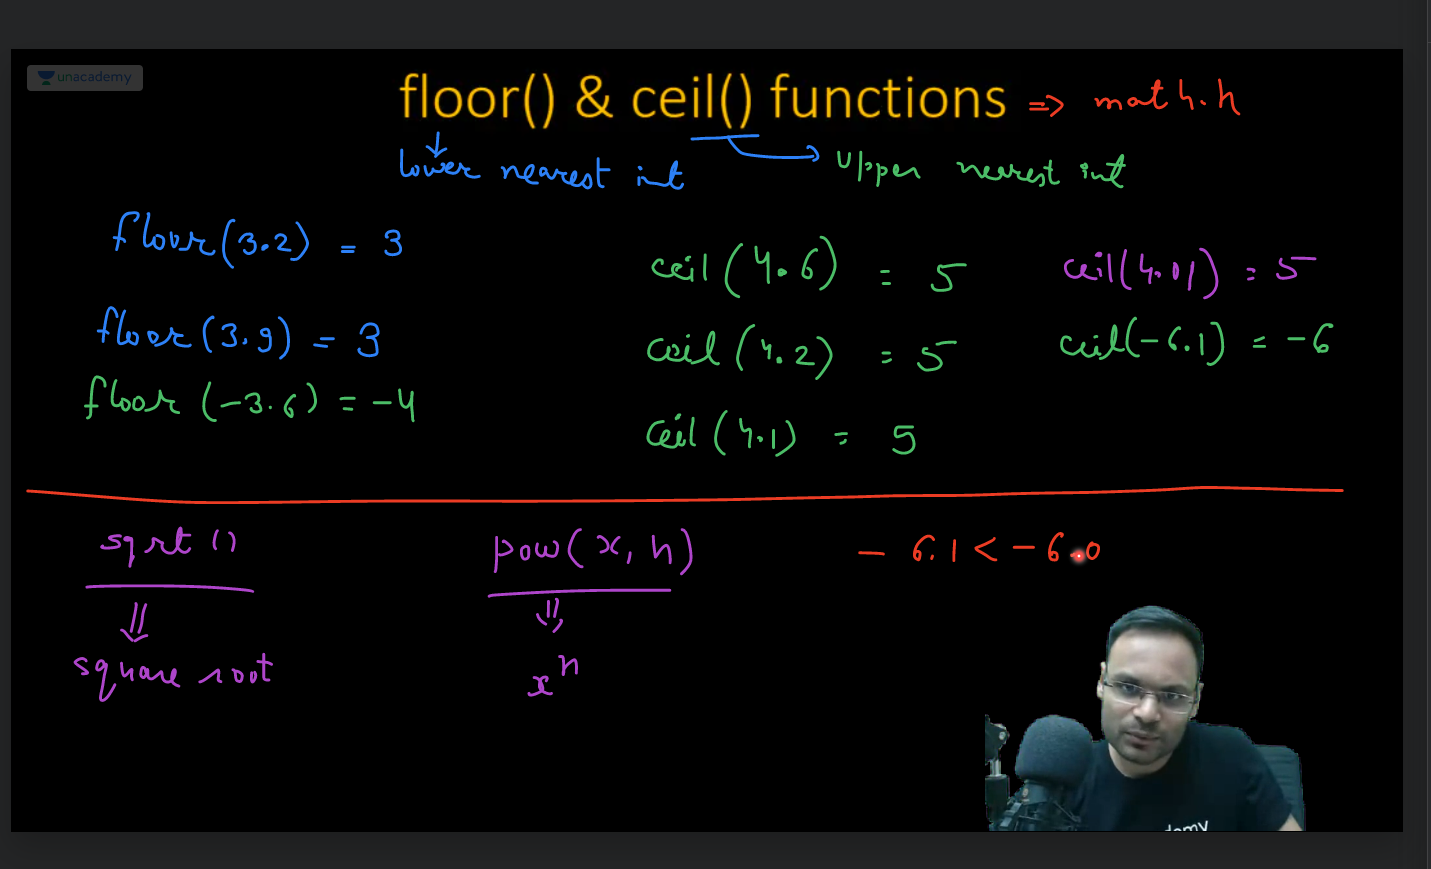 unacademy
floor() & ceil() functions => math.h
lower nearest int
upper nearest int
floor(3.2) = 3
floor(3.9) = 3
floor(-3.6) = -4
ceil(4.6) = 5
ceil(4.2) = 5
ceil(4.1) = 5
ceil(4.01) = 5
ceil(-6.1) = -6
sqrt()
square root
pow(x, n)
xⁿ
-6.1 < -6.0
demy